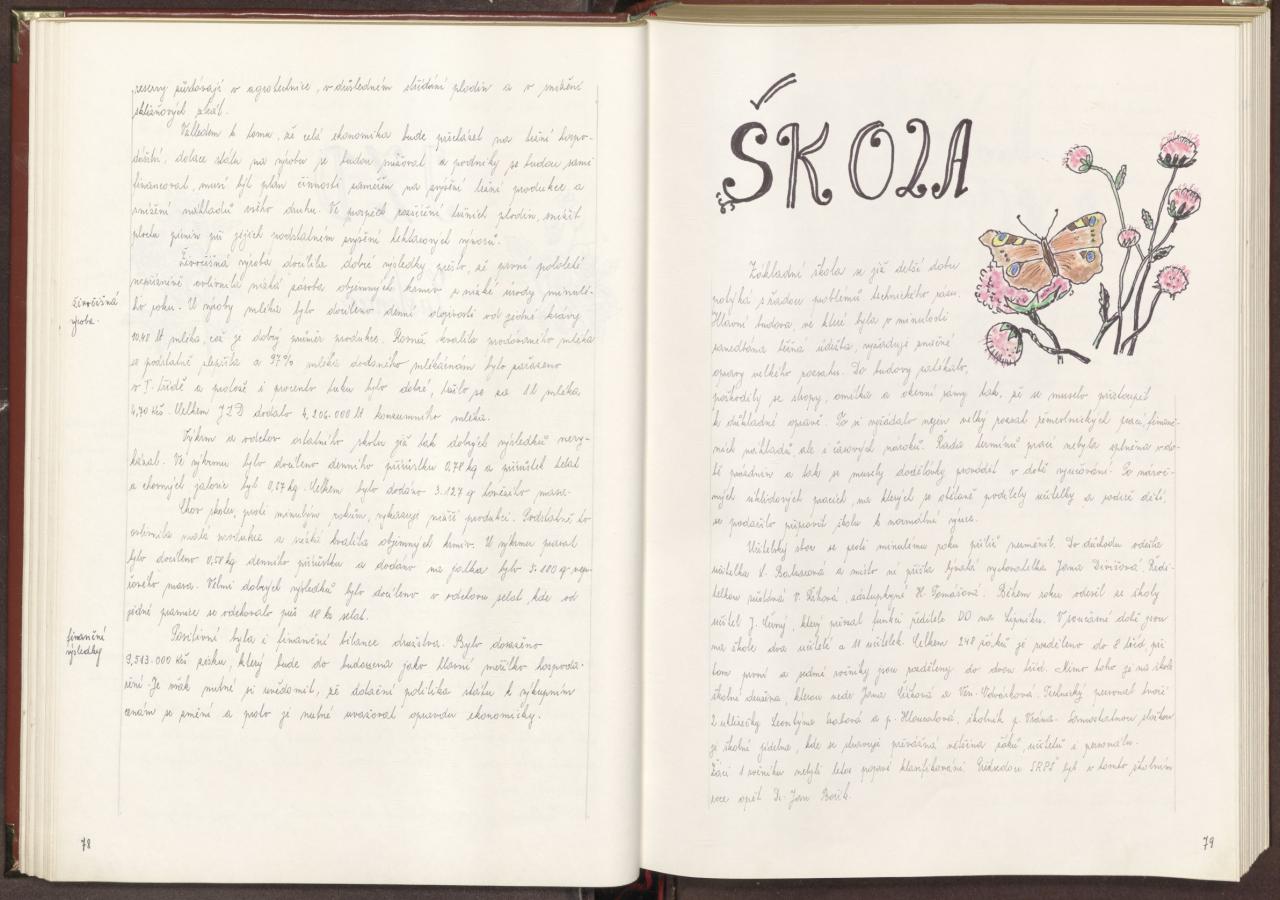 rezervy zůstávají v agrotechnice, v důsledném střídání plodin a v snížení
sklizňových ztrát.
Vzhledem k tomu, že celá ekonomika bude přecházet na tržní hospo-
dářství, dotace státu na výrobu se budou snižovat a podniky se budou sami
financovat, musí být plán činnosti zaměřen na zvýšení tržní produkce a
snížení nákladů všeho druhu. Ve prospěch rozšíření tržních plodin, snížit
plochu pícnin při jejich podstatném zvýšení hektarových výnosů.
Živočišná
výroba.
Živočišná výroba docílila dobré výsledky přesto, že první pololetí
nepříznivě ovlivnila nízká zásoba objemných krmiv z nízké úrody minulé-
ho roku. U výroby mléka bylo docíleno denní dojivosti od jedné krávy
10,48 lt mléka, což je dobrý průměr produkce. Rovněž kvalita prodávaného mléka
se podstatně zlepšila a 97% mléka dodaného mlékárnám bylo zařazeno
v I. třídě a protože i procento tuku bylo dobré, tržilo se za 1 lt mléka
4,70 Kčs. Celkem JZD dodalo 4,204.000 lt konzumního mléka.
Výkrm a odchov ostatního skotu již tak dobrých výsledků nevy-
kázal. Ve výkrmu bylo docíleno denního přírůstku 0,78 kg a přírůstek telat
a chovných jalovic byl 0,57 kg. Celkem bylo dodáno 3.127 q hovězího masa.
Chov skotu, proti minulým rokům, vykazuje nižší produkci. Podstatně to
ovlivnila malá produkce a nízká kvalita objemných krmiv. U výkrmu prasat
bylo docíleno 0,58 kg denního přírůstku a dodáno na jatka bylo 5.100 q vep-
řového masa. Velmi dobrých výsledků bylo docíleno v odchovu selat, kde od
jedné prasnice se odchovalo přes 18 ks selat.
finanční
výsledky
Pozitivní byla i finanční bilance družstva. Bylo dosaženo
9,513.000 Kčs zisku, který bude do budoucna jako hlavní měřítko hospoda-
ření. Je však nutné si uvědomit, že dotační politika státu k výkupním
cenám se změní a proto je nutné uvažovat opravdu ekonomicky.
78
ŠKOLA
Základní škola se již delší dobu
potýká s řadou problémů technického rázu.
Hlavní budova, ve které byla v minulosti
zanedbána běžná údržba, vyžaduje značné
opravy velkého rozsahu. Do budovy zatékalo,
poškodily se stropy, omítka a okenní rámy tak, že se muselo přistoupit
k důkladné opravě. To si vyžádalo nejen velký rozsah řemeslnických prací, finanč-
ních nákladů, ale i časových nároků. Řada termínů prací nebyla splněna v do-
bě prázdnin a tak se musely dodělávky provádět v době vyučování. Po nároč-
ných úklidových pracích, na kterých se obětavě podílely učitelky a rodiče dětí,
se podařilo připravit školu k normální výuce.
Učitelský sbor se proti minulému roku příliš nezměnil. Do důchodu odešla
učitelka V. a místo ní přišla bývalá vychovatelka Jana Divišová. Ředi-
telkou zůstává V. zástupkyní H. Tomášová. Během roku odešel ze školy
učitel J. Černý, který přijal funkci ředitele DD na Lipníku. V současné době jsou
na škole dva učitelé a 11 učitelek. Celkem 248 žáků je rozděleno do 8 tříd při
tom první a sedmé ročníky jsou rozděleny do dvou tříd. Mimo toho je na škole
školní družina, kterou vede Jana a Ven. Technický personál tvoří
2 uklízečky Leontýna a p. školník p. Vrána. Samostatnou složkou
je školní jídelna, kde se stravuje převážná většina žáků, učitelů i personálu.
Žáci 1 ročníku nebyli letos poprvé klasifikováni. Předsedou SRPŠ byl v tomto školním
roce opět Dr. Jan
79